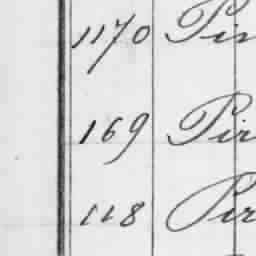 1170 Pir
169 Pir
118 Pir